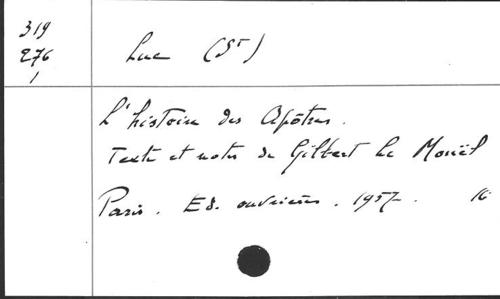 319
276
1
Luc (St)
L'histoire des Apôtres.
Texte et notes de Gilbert Le Mouël
Paris. Ed. ouvrières. 1957. 16